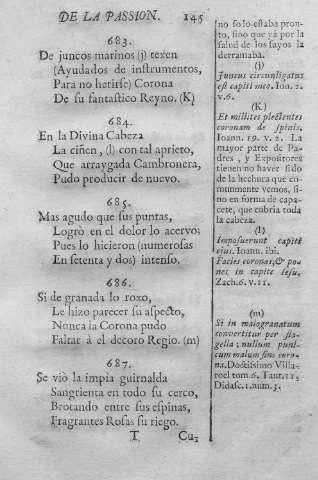 DE LA PASSION. 145
683.
De juncos marinos (j) texen
(Ayudados de instrumentos,
Para no herirse) Corona
De su fantastico Reyno. (K)
684.
En la Divina Cabeza
La ciñen, (l) con tal aprieto,
Que arraygada Cambronera,
Pudo producir de nuevo.
685.
Mas agudo que sus puntas,
Logrò en el dolor lo acervo;
Pues lo hicieron (numerosas
En setenta y dos) intenso.
686.
Si de granada lo roxo,
Le hizo parecer su aspecto,
Nunca la Corona pudo
Faltar à el decoro Regio. (m)
687.
Se viò la impia guirnalda
Sangrienta en todo su cerco,
Brotando entre sus espinas,
Fragrantes Rosas su riego.
T Cu-
no solo estaba pron-
to, sino que yà por la
salud de los suyos la
derramaba.
(j)
Juncus circunligatus
est capiti meo. Ion. 2.
v. 6.
(K)
Et milites plectentes
coronam de spinis.
Ioann. 19. v. 2. La
mayor parte de Pa-
dres, y Expositores
tienen no haver sido
de la hechura que co-
munmente vemos, si-
no en forma de capa-
cete, que cubria toda
la cabeza.
(l)
Imposuerunt capiti
ejus. Ioann. ibi.
Facies coronas, & po-
nes in capite Iesu.
Zach. 6. v. 11.
(m)
Si in malogranatum
convertitur per fla-
gella; nullum puni-
cum malum sine coro-
na. Doctissimo Villa-
roel tom. 6. Taut. 115
Didasc. 1. num. 3.